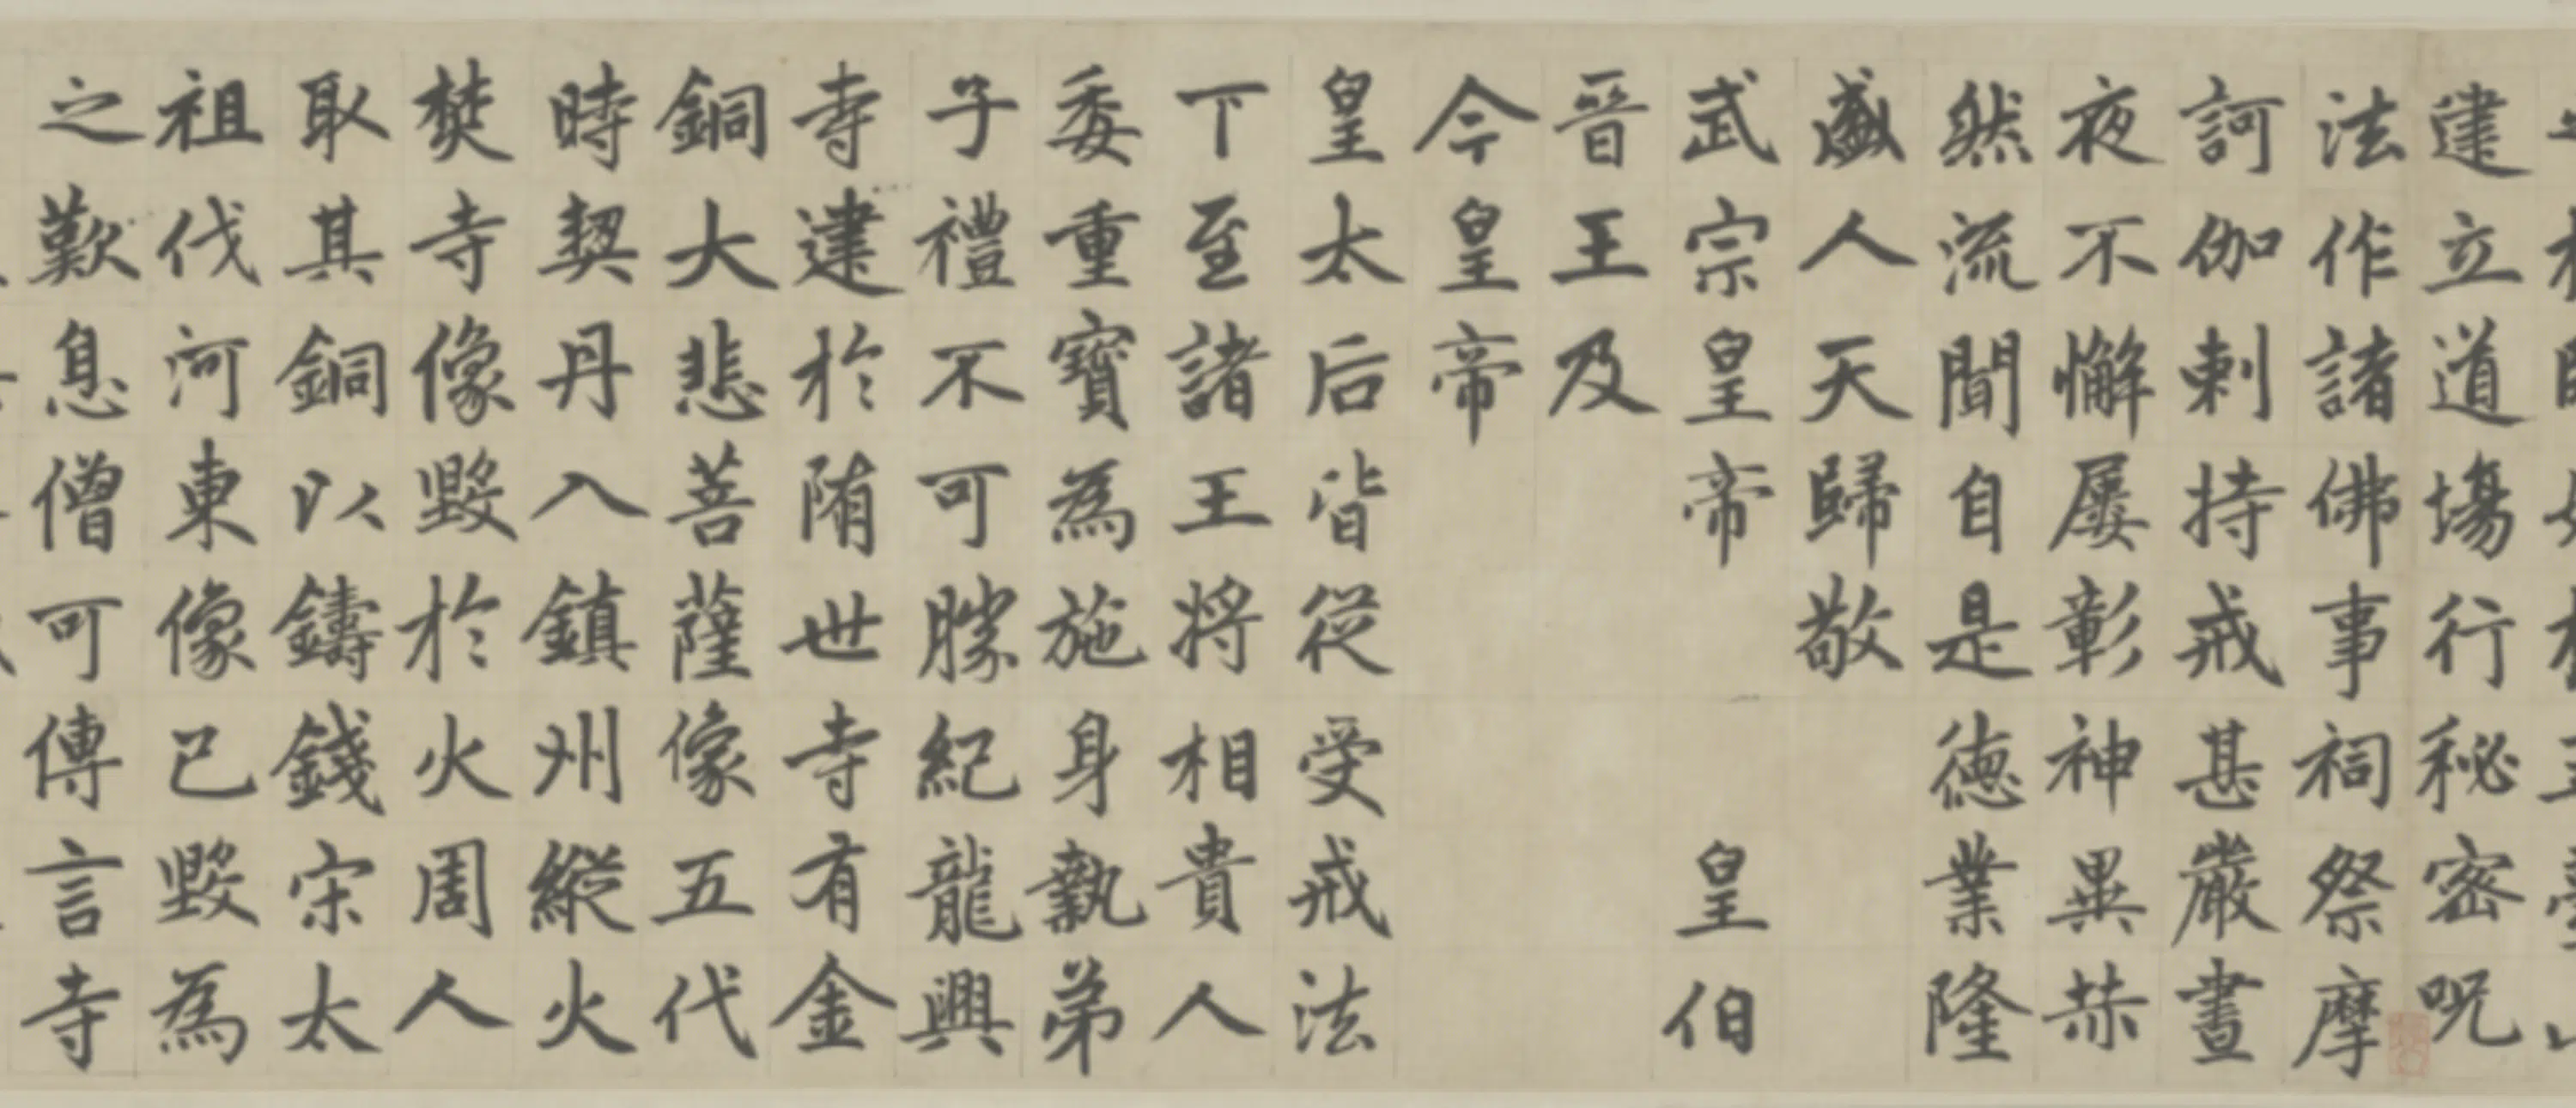 建立道場行秘密呪
法作諸佛事祠祭摩
訶伽剌持戒甚嚴晝
夜不懈屡彰神異赫
然流聞自是德業隆
盛人天歸敬
武宗皇帝　皇伯
晉王及
今皇帝
皇太后皆從受戒法
下至諸王將相貴人
委重寶為施身執弟
子禮不可勝紀龍興
寺建於隋世寺有金
銅大悲菩薩像五代
時契丹入鎮州縱火
焚寺像毀於火周人
取其銅以鑄錢宋太
祖伐河東像已毀為
之歎息僧可傳言寺